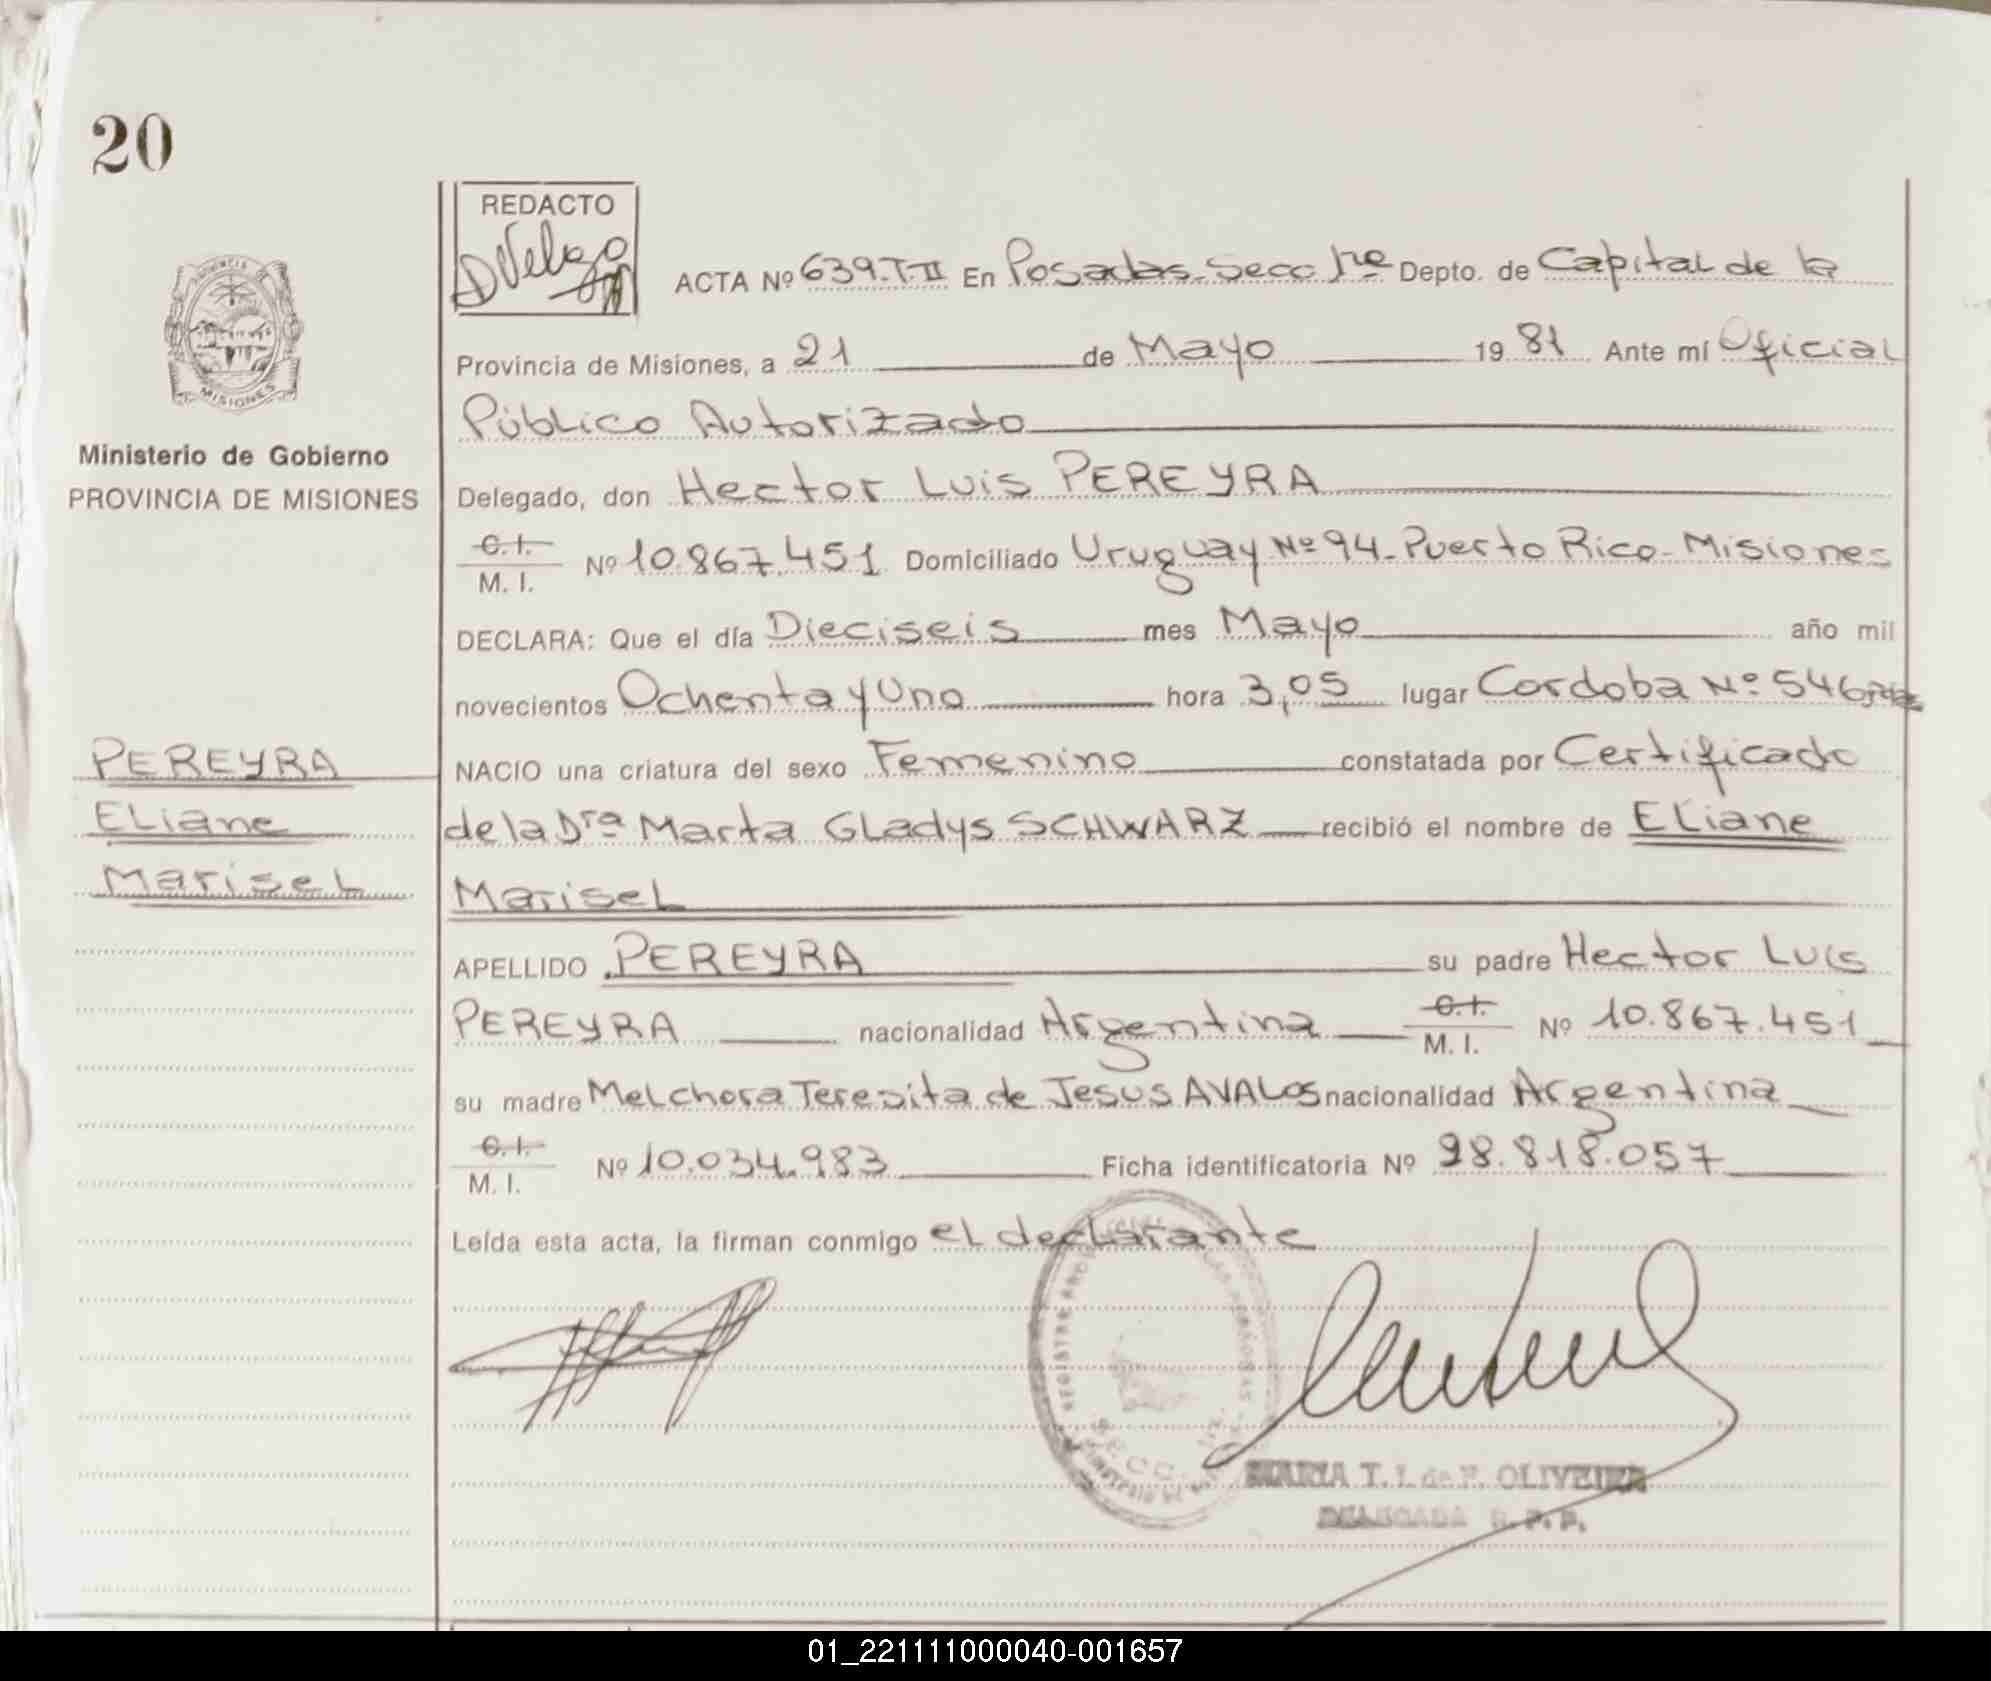 20
REDACTO
ACTA Nº 639.T-II En Posadas-Secc 1ra Depto. de Capital de la
Provincia de Misiones, a 21 de Mayo 19 81 Ante mí Oficial
Público Autorizado
Ministerio de Gobierno
PROVINCIA DE MISIONES
Delegado, don Hector Luis PEREYRA
C.I.
M. I. Nº 10.867.451 Domiciliado Uruguay Nº 94-Puerto Rico-Misiones
DECLARA: Que el día Dieciseis mes Mayo año mil
novecientos Ochenta y Uno hora 3,05 lugar Cordoba Nº 546
PEREYRA
Eliane
Marisel
NACIO una criatura del sexo Femenino constatada por Certificado
de la Dra Marta Gladys SCHWARZ recibió el nombre de Eliane
Marisel
APELLIDO PEREYRA su padre Hector Luis
PEREYRA nacionalidad Argentina C.I. M. I. Nº 10.867.451
su madre Melchora Teresita de Jesus AVALOS nacionalidad Argentina
C.I.
M. I. Nº 10.034.983 Ficha identificatoria Nº 28.818.057
Leída esta acta, la firman conmigo el declarante
MARIA T. I. de F. OLIVEIRA
DELEGADA R. P. P.
01_221111000040-001657